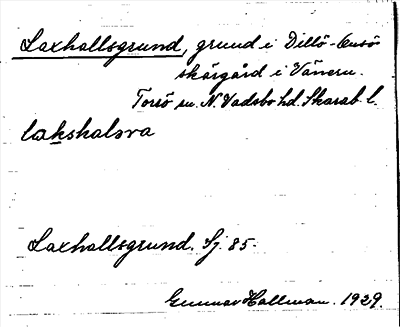 Laxhallsgrund, grund i Dillö-Onsö
skärgård i Vänern.
Torsö sn. N. Vadsbo hd. Skarab. l.
lakshalsva
Laxhallsgrund. Sj. 85.
Gunnar Hallman. 1929.